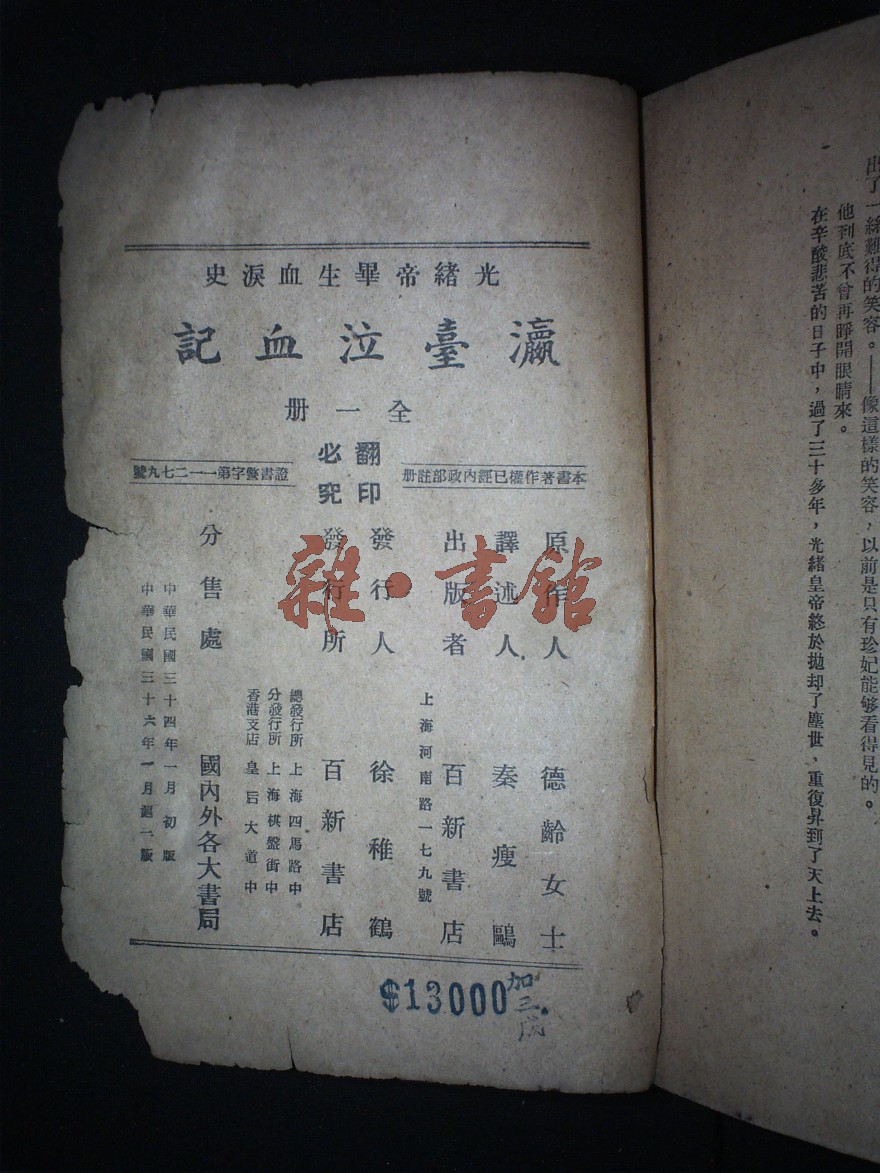 出了一絲難得的笑容。——像這樣的笑容，以前是只有珍妃能够看得見的。
他到底不曾再睜開眼睛來。
在辛酸悲苦的日子中，過了三十多年，光緒皇帝終於拋却了塵世、重復昇到了天上去。
光緒帝畢生血淚史
瀛臺泣血記
全一册
翻印必究
本書著作權已經內政部註册
證書警字第一一二七九號
原作人 德齡女士
譯述人 秦瘦鷗
出版者 百新書店
上海河南路一七九號
發行人 徐稚鶴
發行所 百新書店
總發行所 上海四馬路中
分發行所 上海棋盤街中
香港支店 皇后大道中
分售處 國內外各大書局
中華民國三十四年一月初版
中華民國三十六年一月
版
$13000
加三成
雜·書館